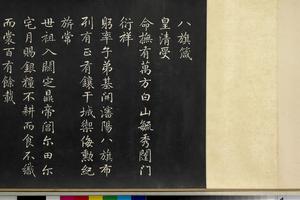 八旗箴
皇清受
命撫有萬方白山毓秀閟門
衍祥
躬率子弟基開瀋陽八旗布
列有正有鑲干城禦侮勲紀
旂常
世祖入關定鼎帝閭尓田尓
宅月賜銀糧不耕而食不織
而裳百有餘載